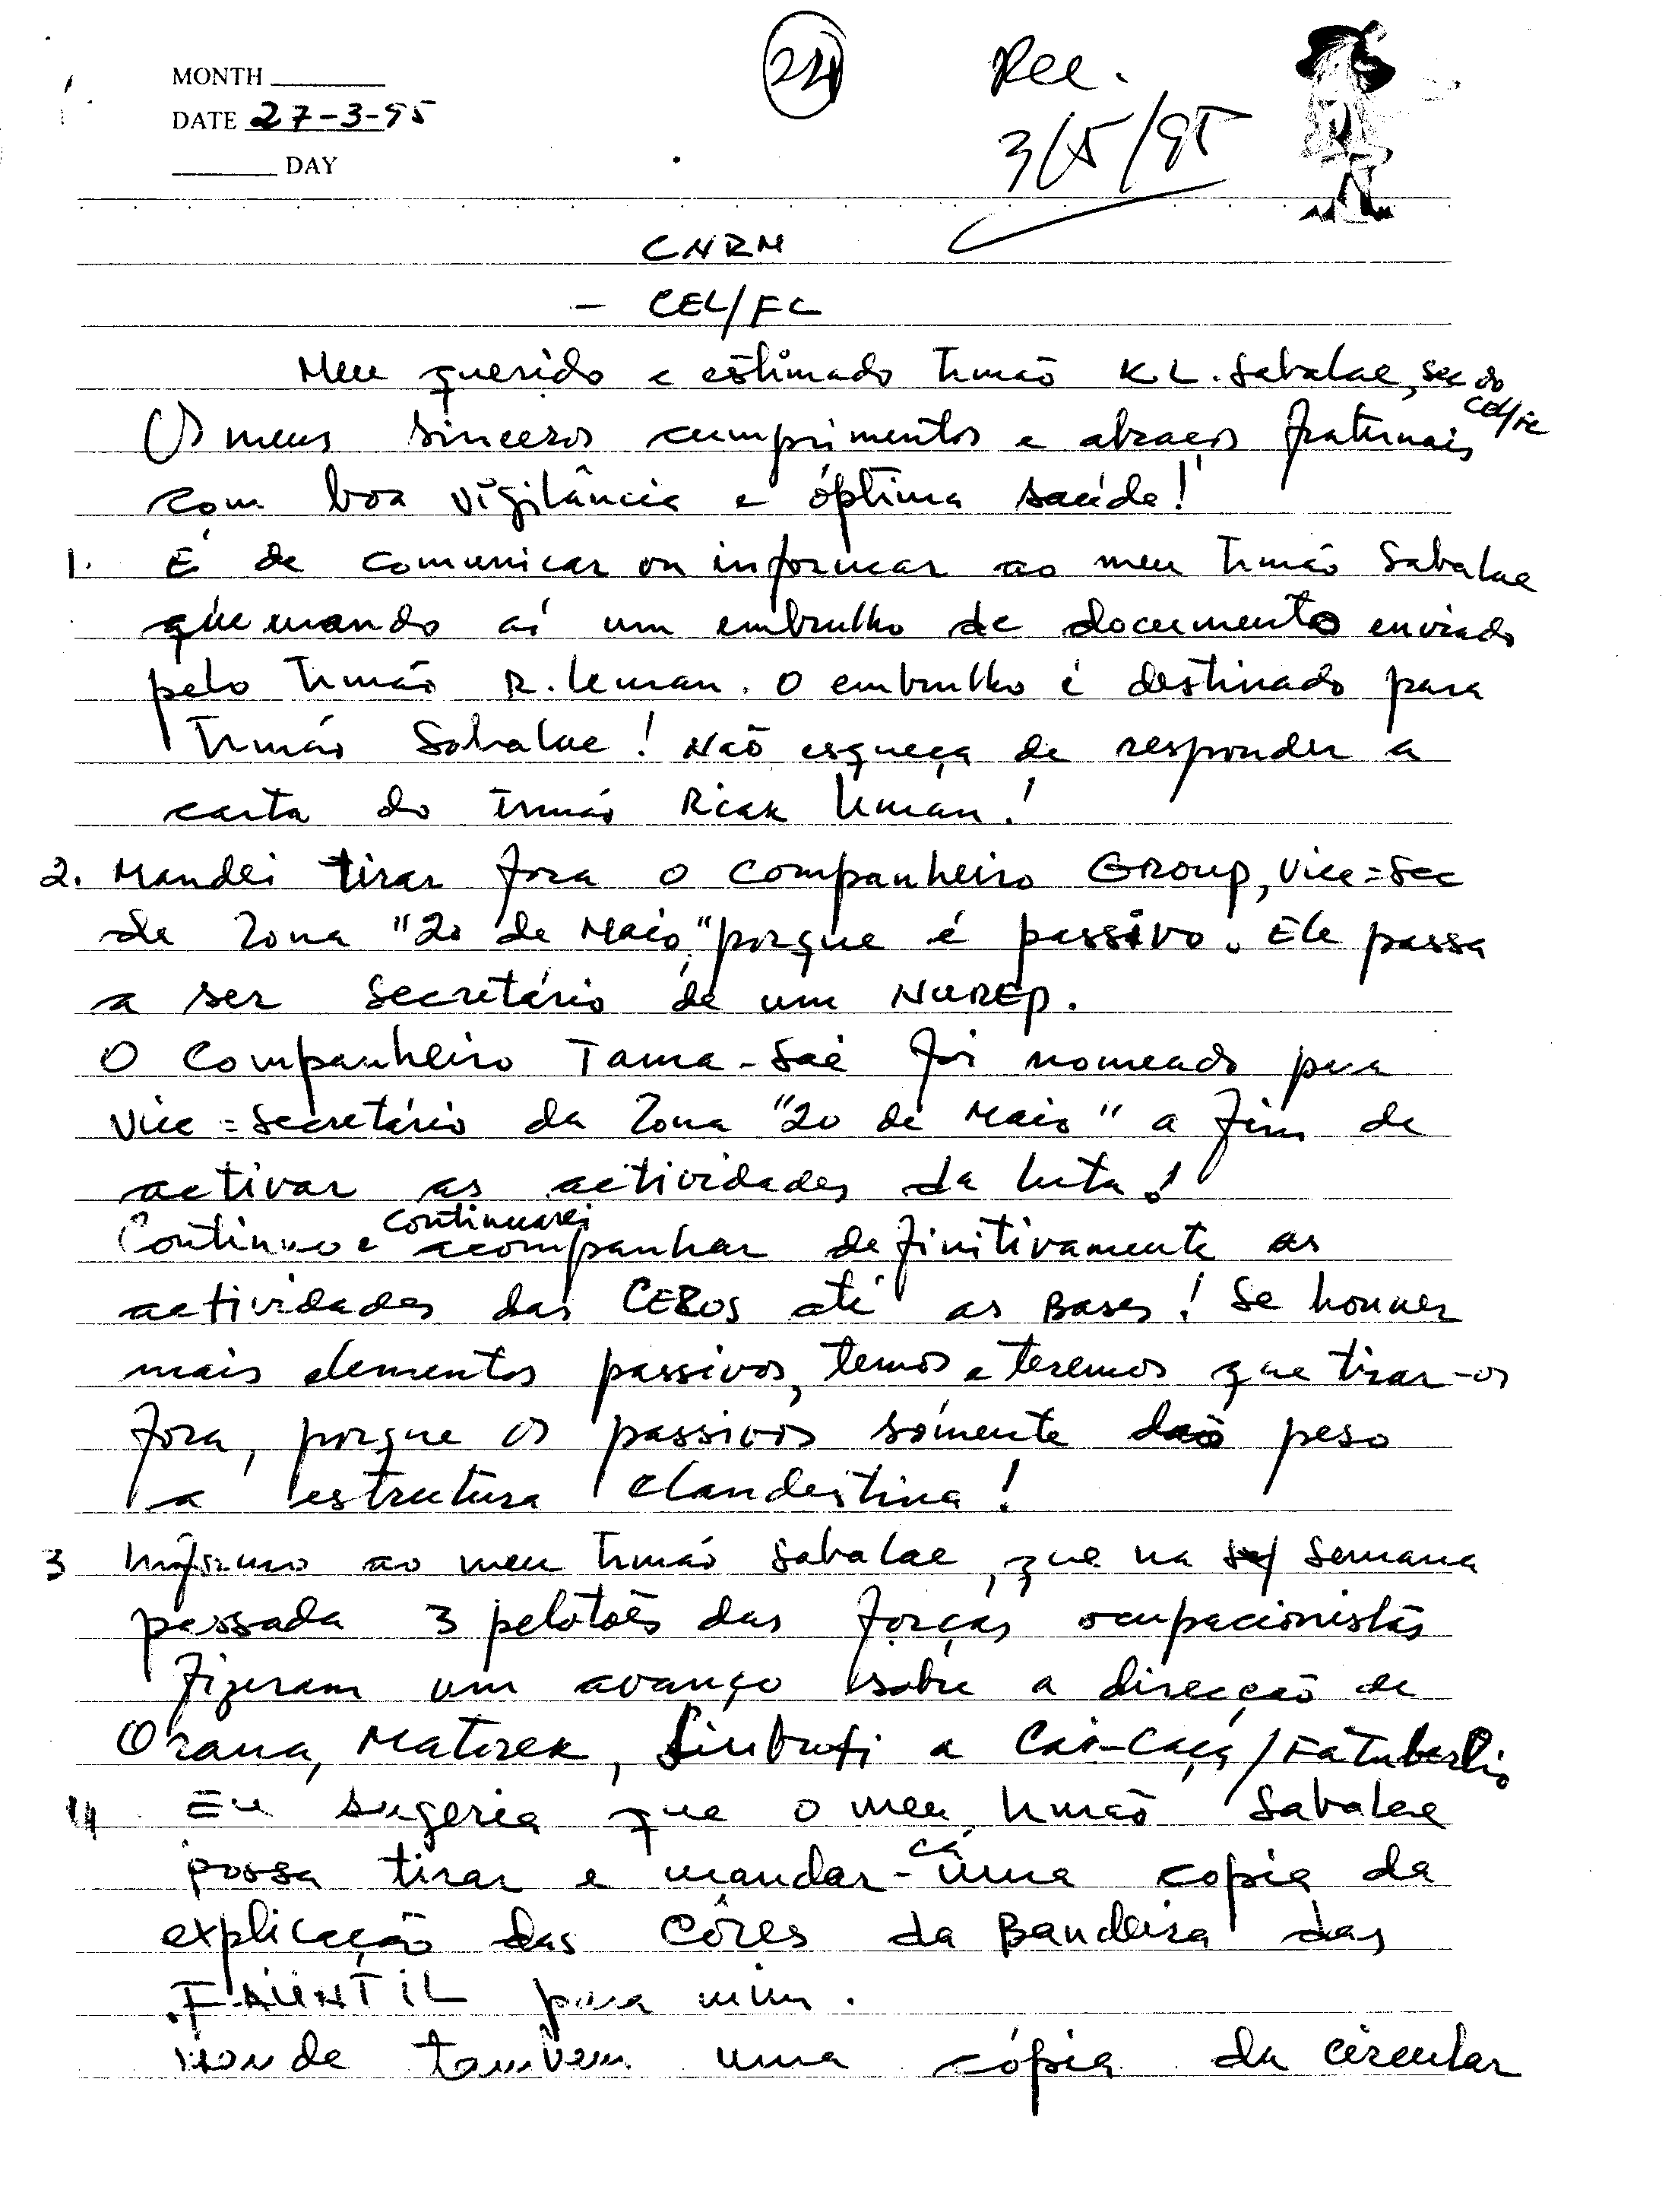 MONTH
DATE 27-3-95
DAY
24
Rec.
3/5/95
CNRM
- CEL/FC
Meu querido e estimado Irmão K.L. Sabalae, sec do
CEL/FC
Os meus sinceros cumprimentos e abraços fraternais
com boa vigilância e óptima saúde!
1. É de comunicar ou informar ao meu Irmão Sabalae
que mando aí um embrulho de documento enviado
pelo Irmão R. Leman. O embrulho é destinado para
Irmão Sabalae! Não esqueça de responder a
carta do Irmão Riak Leman!
2. Mandei tirar fora o Companheiro Group, Vice=Sec
de Zona "20 de Maio," porque é passivo. Ele passa
a ser Secretário de um NUREP.
O Companheiro Tama-Saé foi nomeado para
Vice=Secretário da Zona "20 de Maio" a fim de
activar as actividades da luta!
Continuo e continuarei acompanhar definitivamente as
actividades das CEZOS até as Bases! Se houver
mais elementos passivos, temos e teremos que tirar-os
fora, porque os passivos sómente dão peso
a estrutura clandestina!
3 Informo ao meu Irmão Sabalae, que na semana
passada 3 pelotões das forças ocupacionistas
fizeram um avanço sobre a direcção de
Orana, Matorek, a Cai-Caça/Fatuberlio
4 Eu sugeria que o meu Irmão Sabalae
possa tirar e mandar-cá uma copia da
explicação das Côres da Bandeira das
FALINTIL para mim.
Mande tambem uma cópia da circular